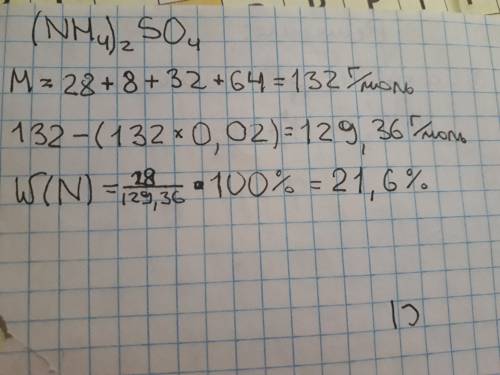 (NH₄)₂SO₄
M = 28 + 8 + 32 + 64 = 132 г/моль
132 - (132 × 0,02) = 129,36 г/моль
W(N) = 28/129,36 · 100% = 21,6%